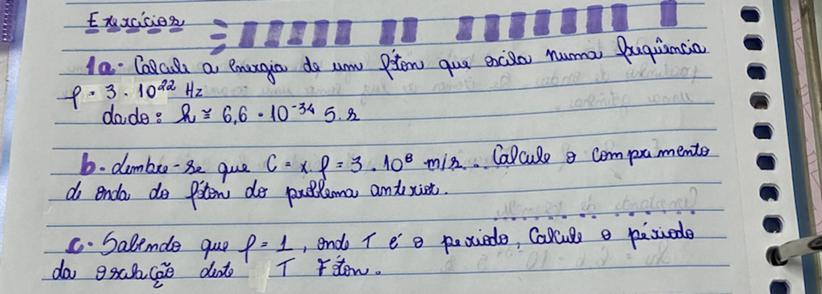 Exercícios
1a. Calcule a energia de um fóton que oscila numa frequência
f = 3 . 10²² Hz
dado: h ≅ 6,6 . 10⁻³⁴ 5.s
b. Lembre-se que C = x f = 3 . 10⁸ m/s.. Calcule o comprimento
de onda do fóton do problema anterior.
c. Sabendo que f = 1, onde T é o periodo, Calcule o périodo
da oscilação deste T Fóton.